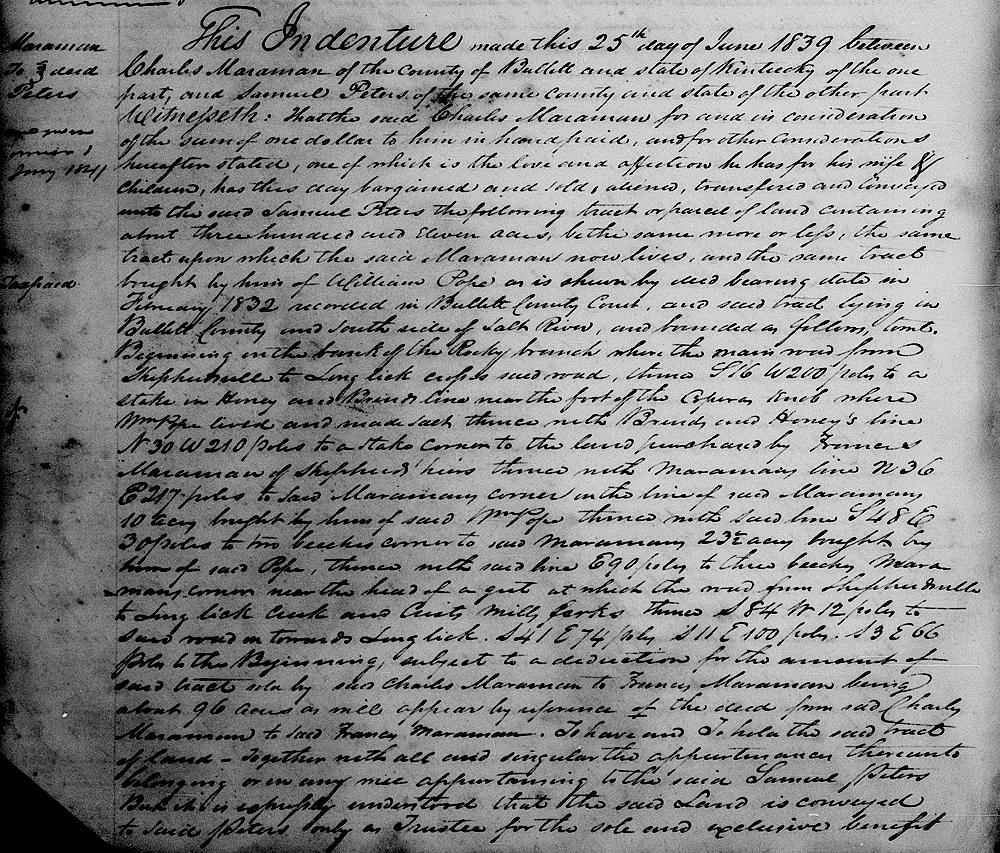 Maraman
To } deed
Peters
Jany 1841
Tax paid
This Indenture made this 25th day of June 1839 between
Charles Maraman of the County of Bullitt and state of Kentucky of the one
part, and Samuel Peters of the same county and state of the other part
Witnesseth: That the said Charles Maraman for and in consideration
of the sum of one dollar to him in hand paid, and for other considerations
hereafter stated, one of which is the love and affection he has for his wife &
children, has this day bargained and sold, aliened, transfered and conveyed
unto the said Samuel Peters the following tract or parcel of land containing
about three hundred and Eleven acres, be the same more or less, the same
tract upon which the said Maraman now lives, and the same tract
bought by him of William Pope as is shewn by deed bearing date in
February 1832 recorded in Bullitt County Court, and said tract lying in
Bullitt County and South side of Salt River, and bounded as follows, towit.
Beginning in the bank of the Rocky branch where the main road from
Shepherdsville to Long lick crosses said road, thence S16 W200 poles to a
stake in Honey and Brunds line near the foot of the Coperas Knob where
Wm Pope lived and made salt thence with Brunds and Honey's line
N 30 W 210 poles to a stake corner to the land purchased by Francis
Maraman of Shepherds heirs thence with Maramans line N 36
E 217 poles to said Maramans corner in the line of said Maramans
10 acres bought by him of said Wm Pope thence with said line S 48 E
30 poles to two beeches corner to said Maramans 23½ acres bought by
him of said Pope, thence with said line E 90 poles to three beeches Mara
mans corner near the head of a gut at which the road from Shepherdsville
to Long lick Creek and Crists Mill forks thence S 84 W 12 poles to
said road on towards Long lick. S 41 E 74 poles S 11 E 100 poles. S 3 E 66
poles to the Beginning, subject to a deduction for the amount of
said tract sold by said Charles Maraman to Francis Maraman being
about 96 acres as will appear by reference to the deed from said Charles
Maraman to said Francis Maraman. To have and To hold the said tract
of land - Together with all and singular the appurtenances thereunto
belonging or in any wise appurtaining to the said Samuel Peters
But it is expressly understood that the said Land is conveyed
to said Peters only as Trustee for the sole and exclusive benefit